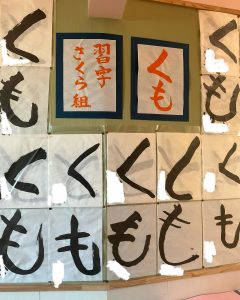 くも
くも
習字
さくら組
くも
くも
くも
くも
くも
くも